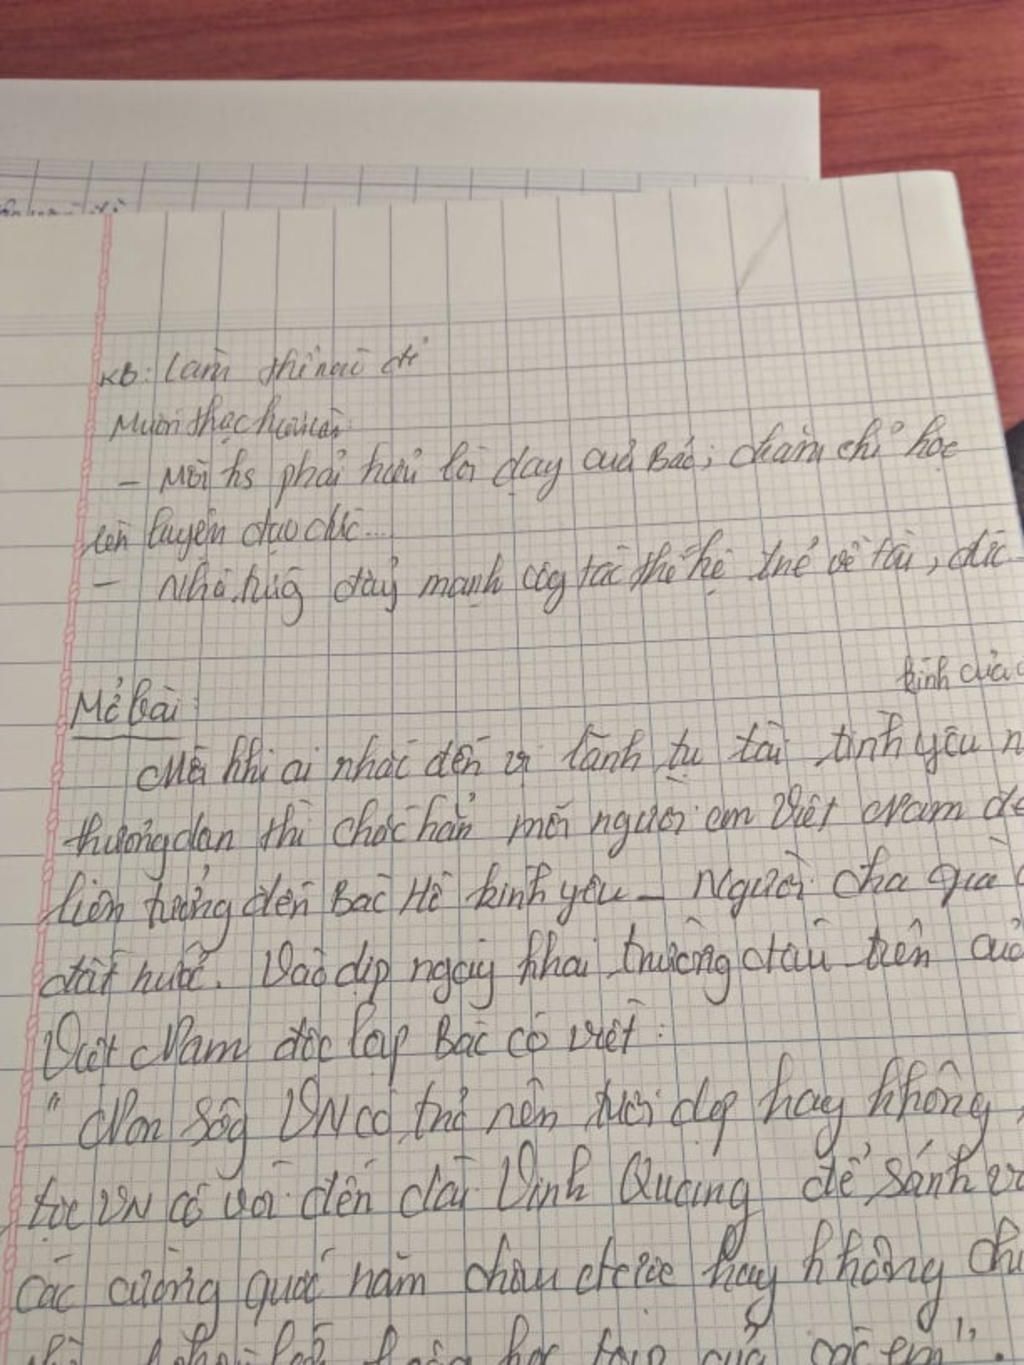 KB: Làm thế nào để
Muốn thực hiện
- Mỗi hs phải hiểu lời dạy của Bác; chăm chỉ học
rèn luyện đạo đức...
- Nhà đẩy mạnh công tác thế hệ trẻ về tài, đức
Mở bài:
kính của
Mỗi khi ai nhắc đến vị lãnh tụ tài tình yêu n
thương dân thì chắc hẳn mỗi người em Việt Nam đề
liên tưởng đến Bác Hồ kính yêu - Người cha già
đất nước. Vào dịp ngày khai trường đầu tiên củ
Việt Nam độc lập Bác có viết:
"Non sông VN có trở nên tươi đẹp hay không,
tộc VN có với đến đài Vinh Quang để sánh v
các cường quốc năm châu được hay không ch
học tập của các em".